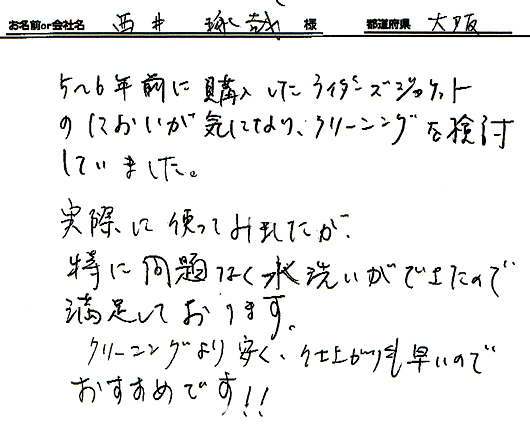 お名前or会社名 西井 琢哉 様 都道府県 大阪
5〜6年前に購入したライダーズジャケット
のにおいが気になり、クリーニングを検討
していました。
実際に使ってみましたが、
特に問題なく水洗いができたので
満足しております。
クリーニングより安く、仕上がりも早いので
おすすめです!!